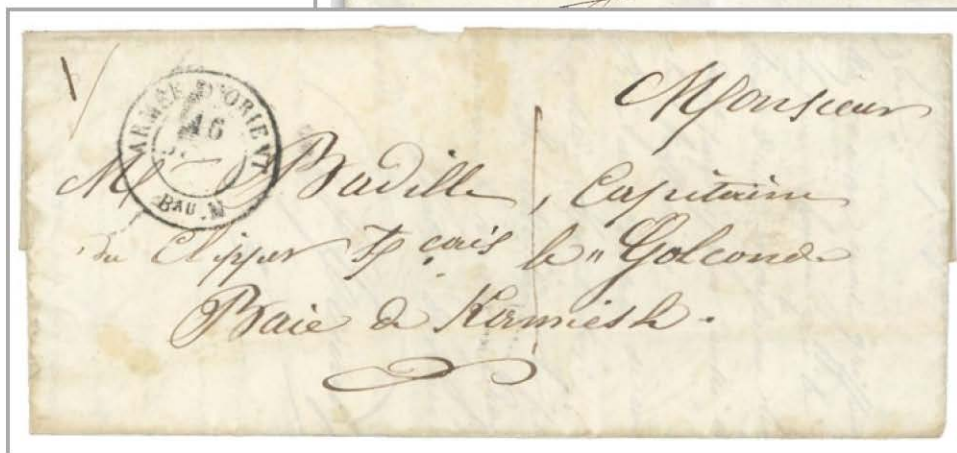 ARMÉE D'ORIENT
16
BAU. M
Monsieur
Mr Badille, Capitaine
du Clipper fçais le "Golconde
Baie de Kamiesh.